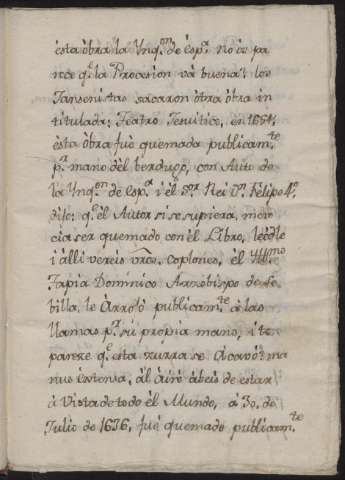 ésta òbra la Ynq.on de Esp.a no òs pa
rece q.e la Procesion và buena? los
Jansenistas sacaron òtra òbra in
titulada: Teatro Jesuitico, en 1654,
èsta òbra fuè quemada publicam.te
p.r mano del berdugo, con Auto de
la Ynq.on de Esp.a i èl S.or Rei D.n Felipo 4º
dijo: q.e èl Autor si se supiera, mere
cia ser quemado con èl Libro, leedle
i àlli vereis vros. Coplones, èl Yll.mo
Tapia Dominico Arzobispo de Se
billa, le Arrojò publicam.te à las
llamas p.r su propia mano, i te
parece q.e esta zurra se Acavò?
nus extensa, àl airè àbeis de estar
à Vista de todo èl Mundo, à 30. de
Julio de 1676, fuè quemado publicam.te